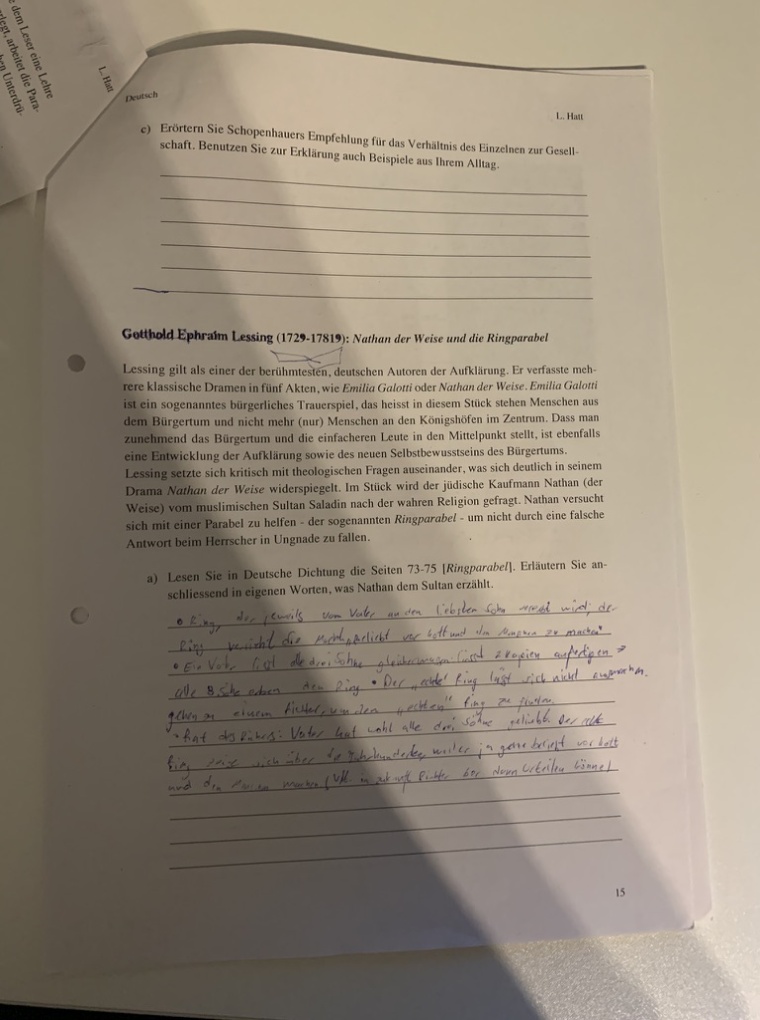 e dem Leser eine Lehre
legt, arbeitet die Para-
hen Unterdrü-
L. Hatt
Deutsch
L. Hatt
c) Erörtern Sie Schopenhauers Empfehlung für das Verhältnis des Einzelnen zur Gesell-
schaft. Benutzen Sie zur Erklärung auch Beispiele aus Ihrem Alltag.
Gotthold Ephraim Lessing (1729-17819): Nathan der Weise und die Ringparabel
Lessing gilt als einer der berühmtesten, deutschen Autoren der Aufklärung. Er verfasste meh-
rere klassische Dramen in fünf Akten, wie Emilia Galotti oder Nathan der Weise. Emilia Galotti
ist ein sogenanntes bürgerliches Trauerspiel, das heisst in diesem Stück stehen Menschen aus
dem Bürgertum und nicht mehr (nur) Menschen an den Königshöfen im Zentrum. Dass man
zunehmend das Bürgertum und die einfacheren Leute in den Mittelpunkt stellt, ist ebenfalls
eine Entwicklung der Aufklärung sowie des neuen Selbstbewusstseins des Bürgertums.
Lessing setzte sich kritisch mit theologischen Fragen auseinander, was sich deutlich in seinem
Drama Nathan der Weise widerspiegelt. Im Stück wird der jüdische Kaufmann Nathan (der
Weise) vom muslimischen Sultan Saladin nach der wahren Religion gefragt. Nathan versucht
sich mit einer Parabel zu helfen - der sogenannten Ringparabel - um nicht durch eine falsche
Antwort beim Herrscher in Ungnade zu fallen.
a) Lesen Sie in Deutsche Dichtung die Seiten 73-75 [Ringparabel]. Erläutern Sie an-
schliessend in eigenen Worten, was Nathan dem Sultan erzählt.
• Ring, der jeweils vom Vater an den liebsten Sohn wird der
Ring die beliebt vor Gott und den Menschen zu machen
• Ein Vater liebt alle drei Söhne gleichermassen lässt 2 Kopien anfertigen →
alle 3 Söhne erben den Ring • Der "echte" Ring lässt sich nicht ausmachen.
gehen zu einem Richter, um den "echten" Ring zu finden.
• Rat des: Vater hat wohl alle drei Söhne geliebt. Der echte
Ring sich über die Jahrhunderte, weil er ja beliebt vor Gott
und den machen Richter urteilen können
15